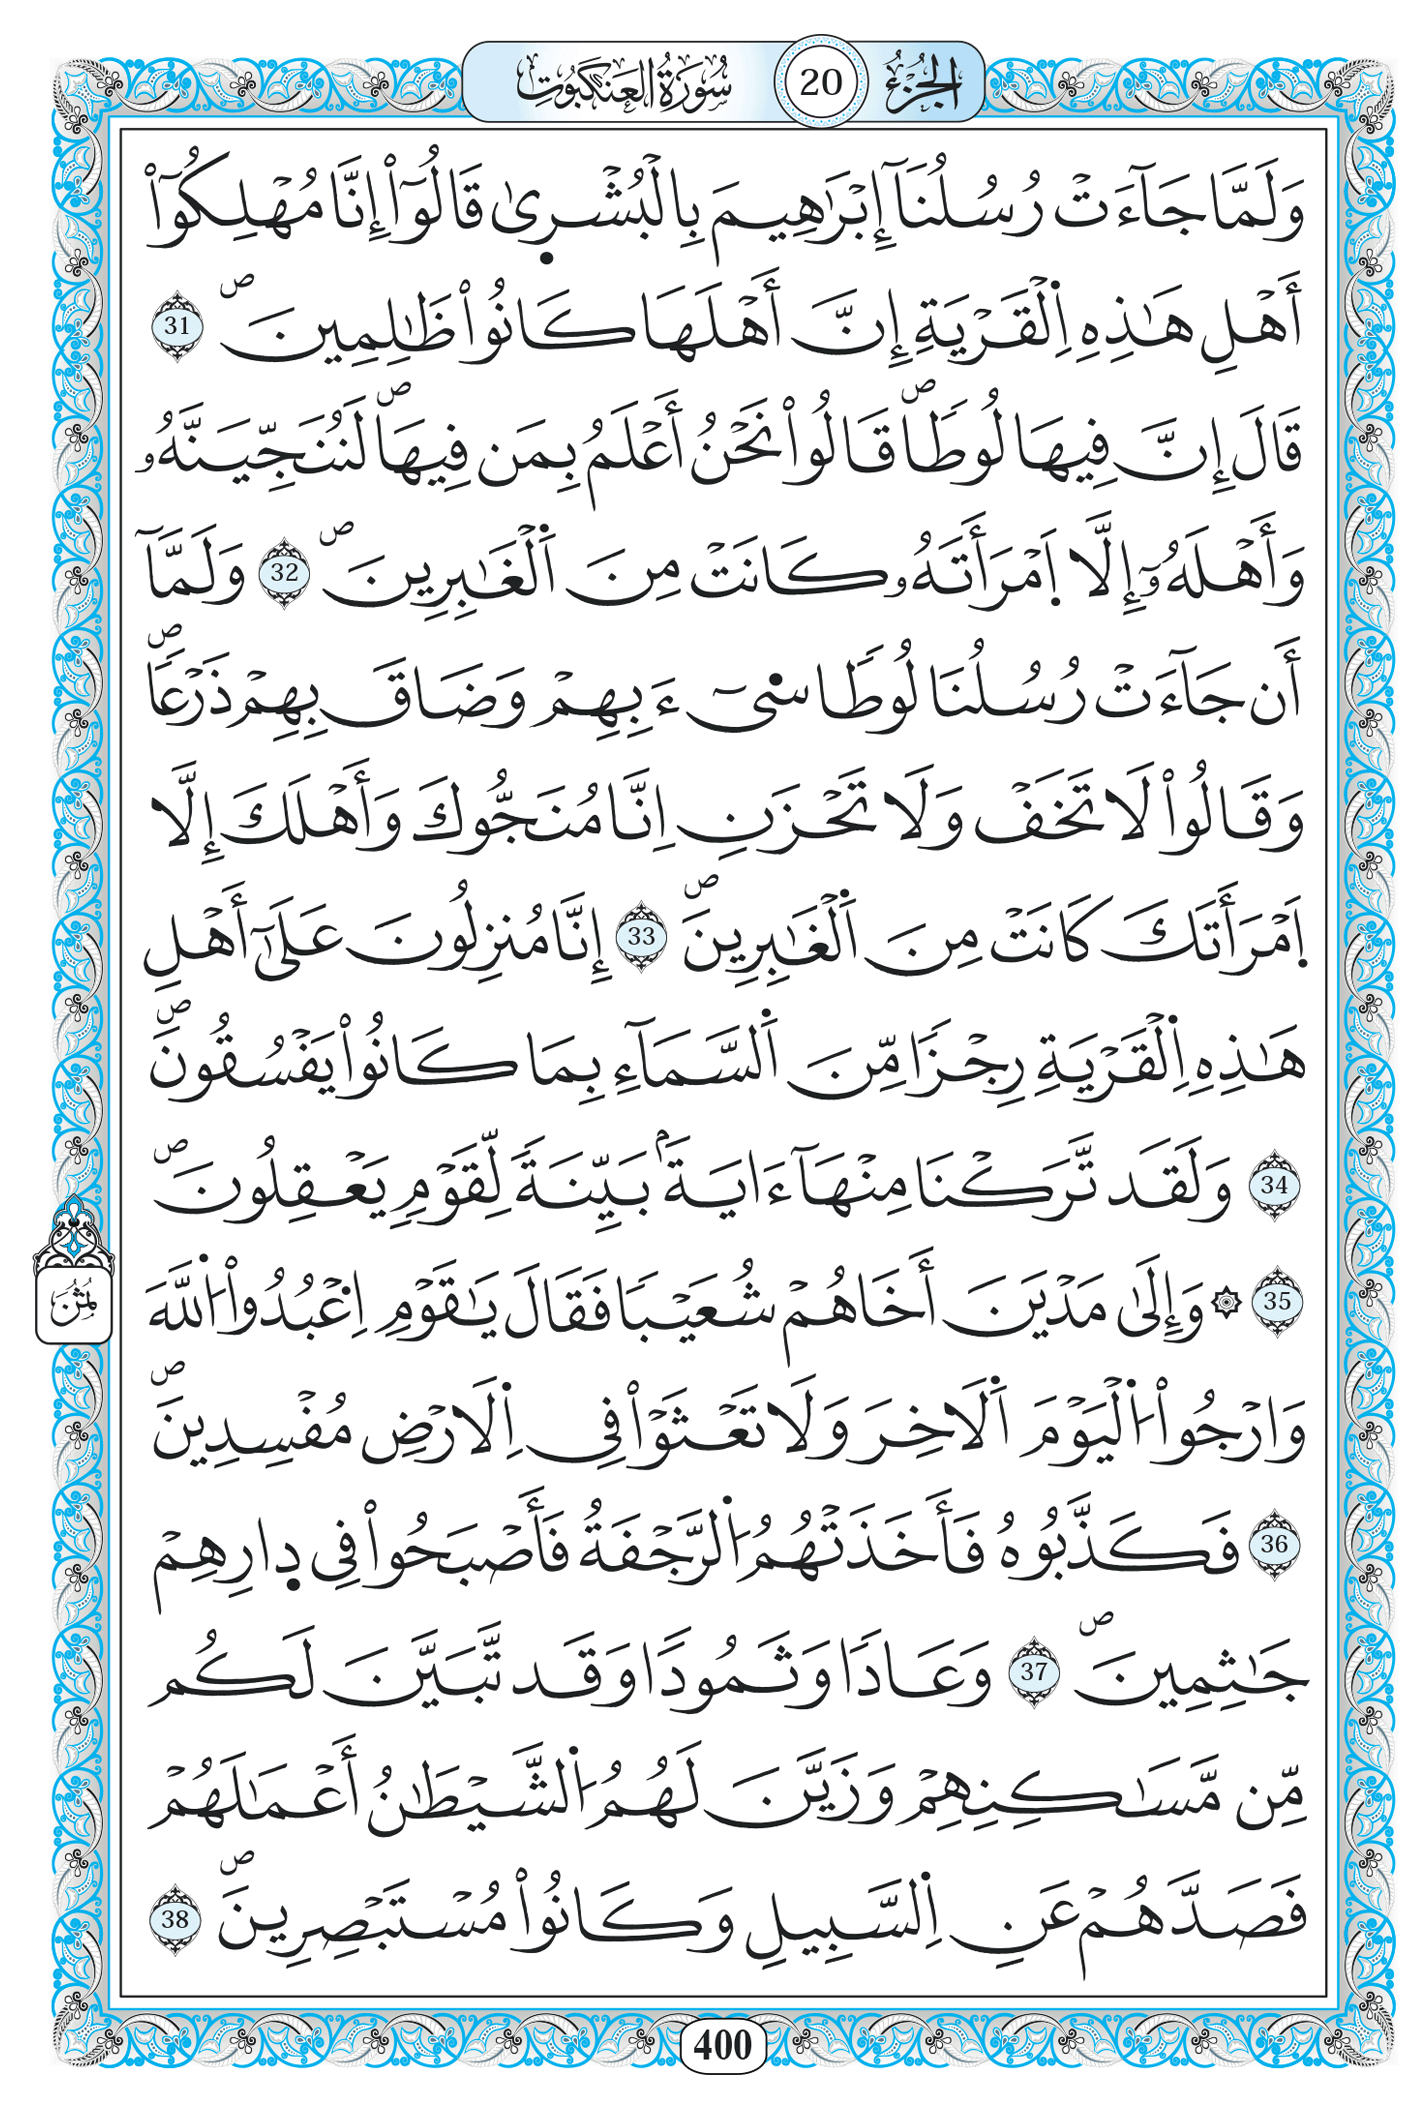 الجزء 20 سورة العنكبوت
وَلَمَّا جَآءَتْ رُسُلُنَآ إِبْرَٰهِيمَ بِالْبُشْر۪يٰ قَالُوٓاْ إِنَّا مُهْلِكُوٓاْ
أَهْلِ هَٰذِهِ اِ۬لْقَرْيَةِ إِنَّ أَهْلَهَا كَانُواْ ظَٰلِمِينَۖ 31
قَالَ إِنَّ فِيهَا لُوطاٗۖ قَالُواْ نَحْنُ أَعْلَمُ بِمَن فِيهَاۖ لَنُنَجِّيَنَّهُۥ
وَأَهْلَهُۥٓ إِلَّا اَ۪مْرَأَتَهُۥ كَانَتْ مِنَ اَ۬لْغَٰبِرِينَۖ 32 وَلَمَّآ
أَن جَآءَتْ رُسُلُنَا لُوطاٗ س۬ےٓءَ بِهِمْ وَضَاقَ بِهِمْ ذَرْعاٗۖ
وَقَالُواْ لَا تَخَفْ وَلَا تَحْزَنِ اِنَّا مُنَجُّوكَ وَأَهْلَكَ إِلَّا
اَ۪مْرَأَتَكَ كَانَتْ مِنَ اَ۬لْغَٰبِرِينَۖ 33 إِنَّا مُنزِلُونَ عَلَىٰٓ أَهْلِ
هَٰذِهِ اِ۬لْقَرْيَةِ رِجْزاٗ مِّنَ اَ۬لسَّمَآءِ بِمَا كَانُواْ يَفْسُقُونَۖ
34 وَلَقَد تَّرَكْنَا مِنْهَآ ءَايَةَۢ بَيِّنَةٗ لِّقَوْمٖ يَعْقِلُونَۖ
35 ۞ وَإِلَىٰ مَدْيَنَ أَخَاهُمْ شُعَيْباٗ فَقَالَ يَٰقَوْمِ اِ۟عْبُدُواْ اُ۬للَّهَ
وَارْجُواْ اُ۬لْيَوْمَ اَ۬لَاخِرَ وَلَا تَعْثَوْاْ فِے اِ۬لَارْضِ مُفْسِدِينَۖ
36 فَكَذَّبُوهُ فَأَخَذَتْهُمُ اُ۬لرَّجْفَةُ فَأَصْبَحُواْ فِے د۪ارِهِمْ
جَٰثِمِينَۖ 37 وَعَاداٗ وَثَمُوداٗ وَقَد تَّبَيَّنَ لَكُم
مِّن مَّسَٰكِنِهِمْ وَزَيَّنَ لَهُمُ اُ۬لشَّيْطَٰنُ أَعْمَٰلَهُمْ
فَصَدَّهُمْ عَنِ اِ۬لسَّبِيلِ وَكَانُواْ مُسْتَبْصِرِينَۖ 38
ثُمُن
400